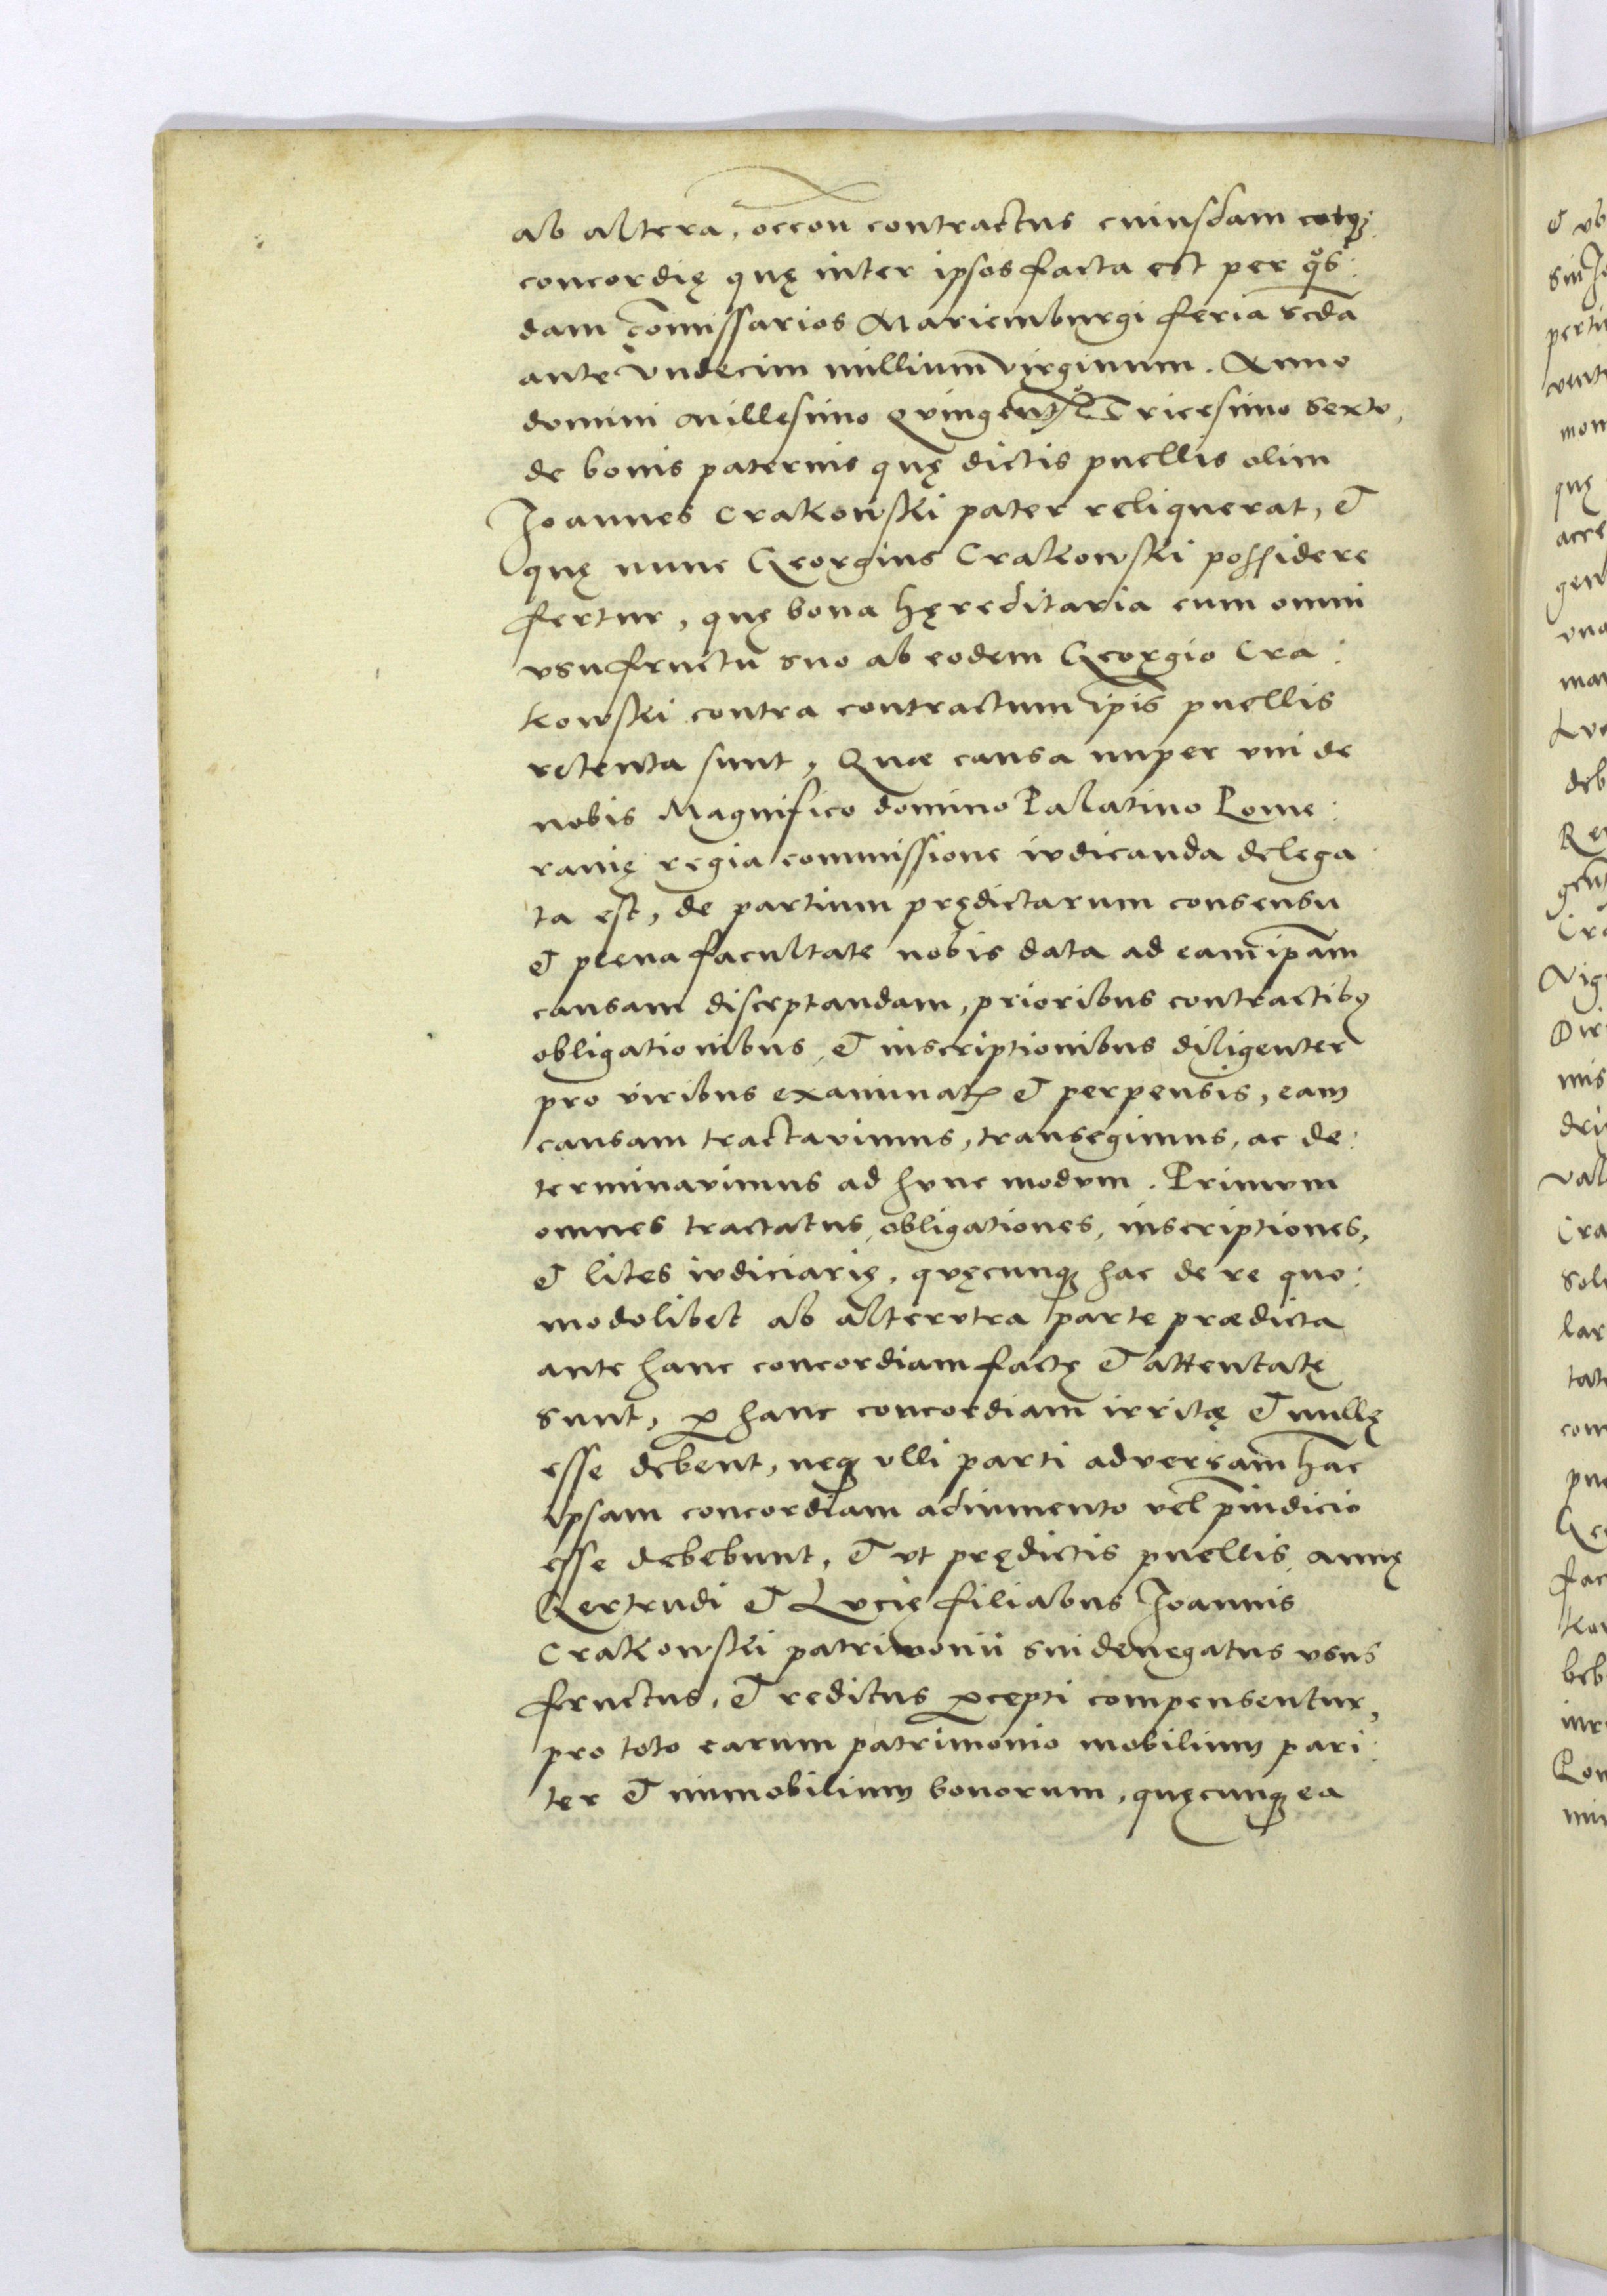 ab altera, occon contractus cuiusdam eutq3:
concordię quę inter ipsos facta est per qos:
dam comissarios Mariemburgi feria scda
ante Vndecim millium Virginum. Anno
domini Millesimo Quingento Tricesimo Sexto,
de bonis paternis quę dictis puellis olim
Joannes Crakowski pater reliquerat, et
quę nunc Georgius Crakowski possidere
fertur, quę bona hęreditaria cum omni
vsufructu suo ab eodem Georgio Cra:
kowski contra contractum ipis puellis
retenta sunt, Quae causa nuper vni de
nobis Magnifico domino Palatino Pome:
ranię regia commissione iudicanda delega:
ta est, de partium prędictarum consensu
et plena facultate nobis data ad eam ipam
causam disceptandam, prioribus contractib9
obligationibus, et inscriptionibus diligenter
pro viribus examinatis et perpensis, eam
causam tractauimus, transegimus, ac de:
terminauimus ad hunc modum. Primum
omnes tractatus, obligationes, inscriptiones,
et lites iudiciarię, quęcunq3 hac de re quo:
modolibet ab alterutra parte praedicta
ante hanc concordiam factę et attentatę
sunt, p hanc concordiam irritę et nullę
esse debent, neq3 vlli parti aduersam hac
ipsam concordiam adiumento vel piudicio
esse debebunt, et vt prędictis puellis, annę
Gertrudi et Lucię filiabus Joannis
Crakowski patrimonii sui denegatus vsus
fructus, et reditus pcepti compensentur,
pro toto earum patrimonio mobilium pari:
ter et immobilium bonorum, quęcunq3 ea